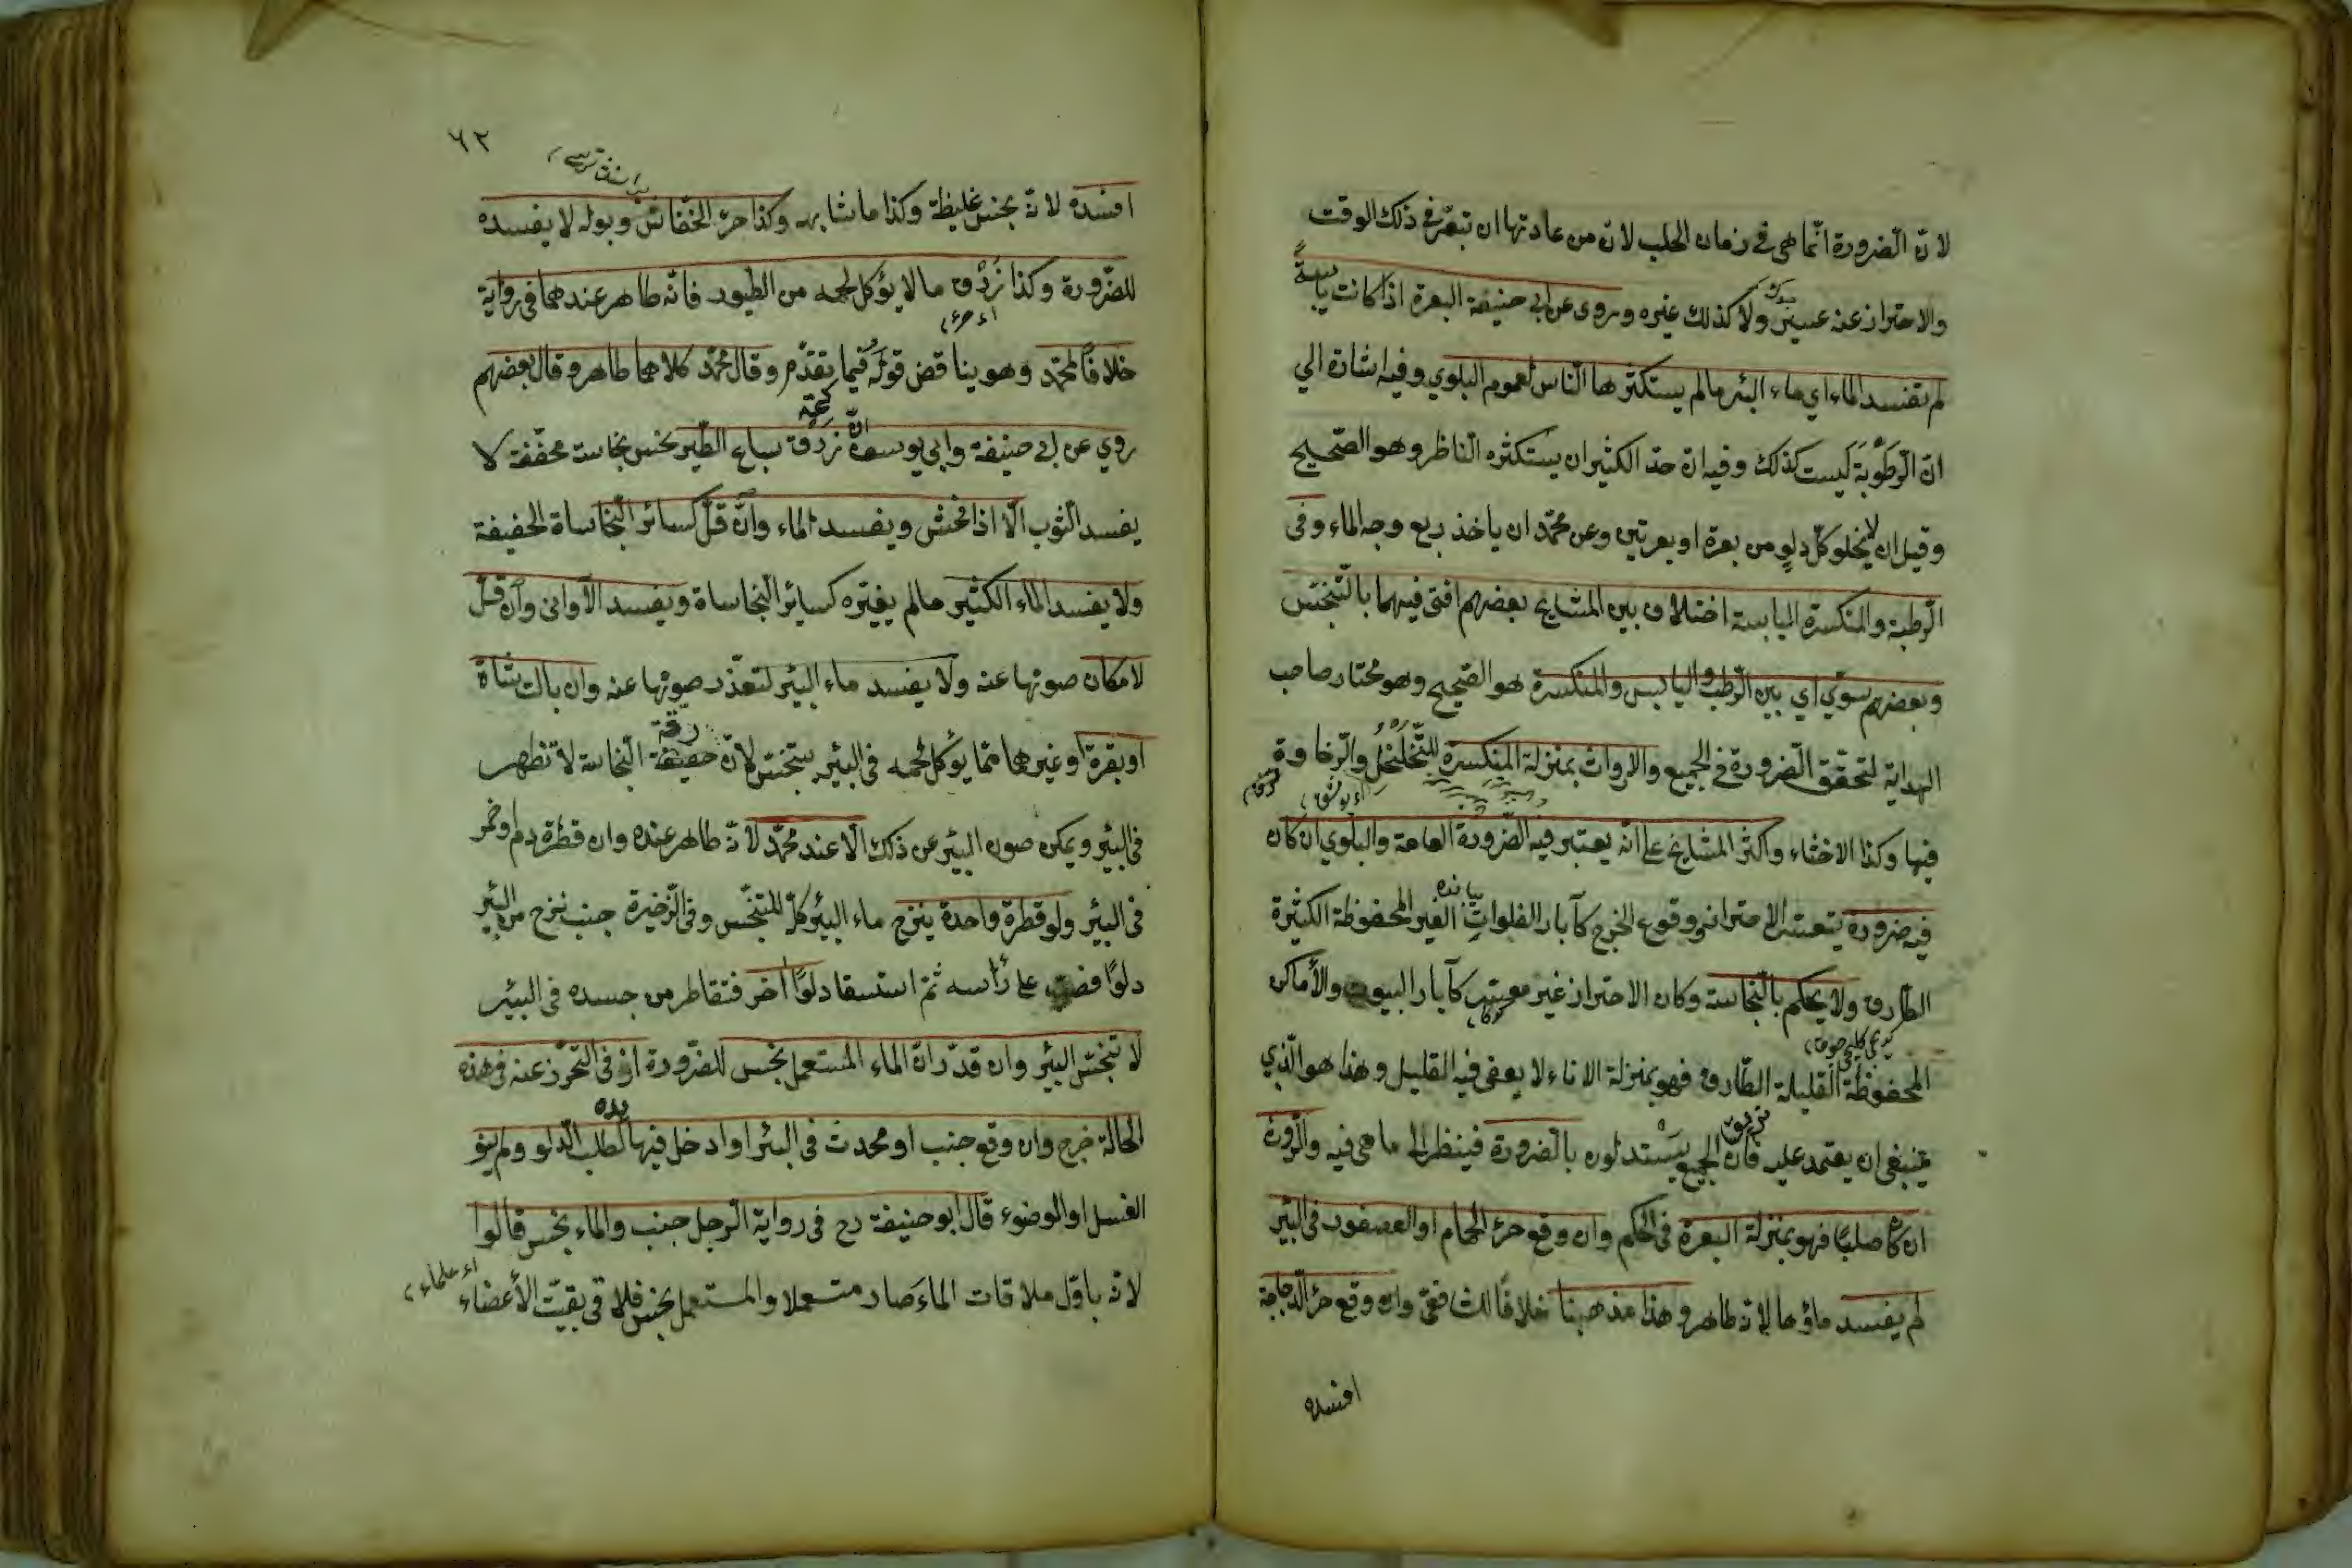 لانّ الضرورة انّما هى فى زمان الحلب لانّ من عادتها ان تبعر فى ذلك الوقت
والاحتراز عنه عسير ولا كذلك غيره وروى عن ابى حنيفة البعرة اذا كانت يابسةً
لم تفسد الماء اي ماء البئر مالم يستكثرها النّاس لعموم البلوي وفيه اشارة الي
انّ الرّطوبة ليست كذلك وفيه انّ حدّ الكثير ان يستكثره النّاظر وهو الصّحيح
وقيل ان لا يخلو كلّ دلوٍ من بعرة او بعرتين وعن محمّد ان ياخذ ربع وجه الماء وفى
الرّطبة والمنكسرة اليابسة اختلاف بين المشايخ بعضهم افتى فيهما بالتّنجّس
وبعضهم سوّي اي بين الرّطب واليابس والمنكسرة هو الصّحيح وهو مختار صاحب
الهداية لتحقّق الضّرورة فى الجميع والاروات بمنزلة المنكسرة للتّخلخل والرّخاوة
فيها وكذا الاخثاء واكثر المشايخ على انّه يعتبر فيه الضّرورة العامة والبلوي ان كان
فيه ضرورة يتعسّر الاحتراز وقوع الخرج كآبار الفلوات الغير المحفوظة الكثيرة
الطّارق ولا يحكم بالنّجاسة وكان الاحتراز غير معسّر كآبار البيوت والأماكن
المحفوظة القليلة الطّارق فهو بمنزلة الاناء لا يعفى فيه القليل وهذا هو الّذي
ينبغى ان يعتمد عليه فانّ الجميع يستدلون بالضّرورة فينظر الى ما هى فيه والرّوث
ان كا صلبًا فهو بمنزلة البعرة فى الحكم وان وقع خرء الحمام او العصفور فى البئر
لم يفسد ماؤها لانّه طاهر وهذا مذهبنا خلافًا للشافعىّ وان وقع خرء الدّجاجة
افسده
٦٢
افسده لانّه نجس غليظة وكذا ما شابهه وكذا خرء الخفّاش وبوله لا يفسده
للضّرورة وكذا زرق مالا يؤكل لحمه من الطّيور فانّه طاهر عندهما فى رواية
خلافًا لمحمّد وهو يناقض قوله فيما تقدّم وقال محمّد كلاهما طاهر وقال بعضهم
روي عن ابى حنيفة وابي يوسف انّ زرق سباع الطّير نجس نجاسة مخفّفة لا
يفسد الثّوب الّا اذا فحش ويفسد الماء وان قلّ كسائر النّجاساة الخفيفة
ولا يفسد الماء الكثير مالم يغيّره كسائر النّجاساة ويفسد الأوانى وان قلّ
لامكان صونها عنه ولا يفسد ماء البئر لتعذّر صونها عنه وان بالت شاة
او بقرة او غيرهما ممّا يؤكل لحمه فى البئر يتنجّس لانّ خفيفة النّجاسة لا تظهر
فى البئر ويمكن صون البئر عن ذلك الّا عند محمّد لانّه طاهر عنده وان قطرة دم او خمر
فى البئر ولو قطرة واحدة ينزح ماء البئر كلّه للتنجّس وفى الذّخيرة جنب نزح من البئر
دلوًا فصبّ على رأسه ثمّ استسقا دلوًا اخر فتقاطر من جسده فى البئر
لا تنجّس البئر وان قدّر انّ الماء المستعمل نجس للضّرورة اذ فى التّحرّز عنه فى هذه
الحالة خرج وان وقع جنب او محدث فى البئر او ادخل فيها يده لطلب الدّلو ولم ينو
الغسل او الوضوء قال ابو حنيفة رح فى رواية الرّجل جنب والماء نجس قالوا
لانّه باوّل ملاقات الماء صار متسعملا والمستعمل نجس فلاقى بقيّت الأعضاء